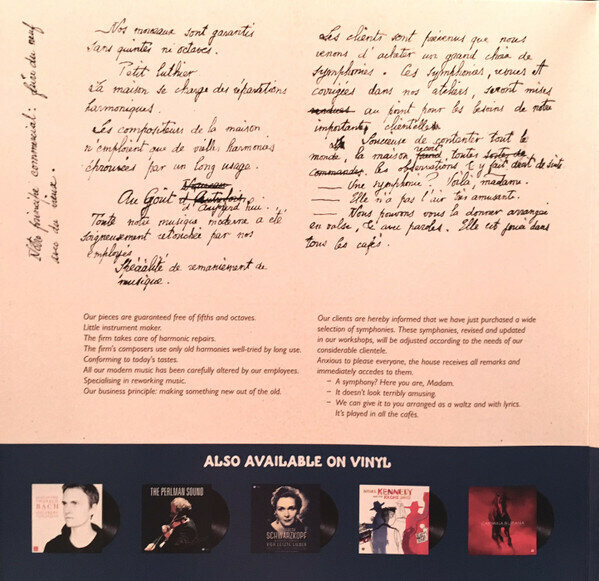 Nos morceaux sont garantis
sans quintes ni octaves.
Petit luthier
La maison se charge des réparations
harmoniques.
Les compositeurs de la maison
n'emploient que de vieilles harmonies
éprouvées par un long usage.
Au Goût d'Autrefois
d'Aujourd'hui.
Toute notre musique moderne a été
soigneusement retouchée par nos
employés
Spécialité de remaniement de
musique.
Notre principe commercial: faire du neuf
avec du vieux.
Les clients sont prévenus que nous
venons d'acheter un grand choix de
symphonies. Ces symphonies, revues et
corrigées dans nos ateliers, seront mises
au point pour les besoins de notre
importante clientèle
Soucieuse de contenter tout le
monde, la maison reçoit toutes
les observations & y fait droit de suite
— Une symphonie? Voilà, madame.
— Elle n'a pas l'air très amusante.
— Nous pouvons vous la donner arrangée
en valse, & avec paroles. Elle est jouée dans
tous les cafés.
Our pieces are guaranteed free of fifths and octaves.
Little instrument maker.
The firm takes care of harmonic repairs.
The firm's composers use only old harmonies well-tried by long use.
Conforming to today's tastes.
All our modern music has been carefully altered by our employees.
Specialising in reworking music.
Our business principle: making something new out of the old.
Our clients are hereby informed that we have just purchased a wide
selection of symphonies. These symphonies, revised and updated
in our workshops, will be adjusted according to the needs of our
considerable clientele.
Anxious to please everyone, the house receives all remarks and
immediately accedes to them.
– A symphony? Here you are, Madam.
– It doesn't look terribly amusing.
– We can give it to you arranged as a waltz and with lyrics.
It's played in all the cafés.
ALSO AVAILABLE ON VINYL
BACH
THE PERLMAN SOUND
SCHWARZKOPF
VIER LETZTE LIEDER
KENNEDY
CARMINA BURANA